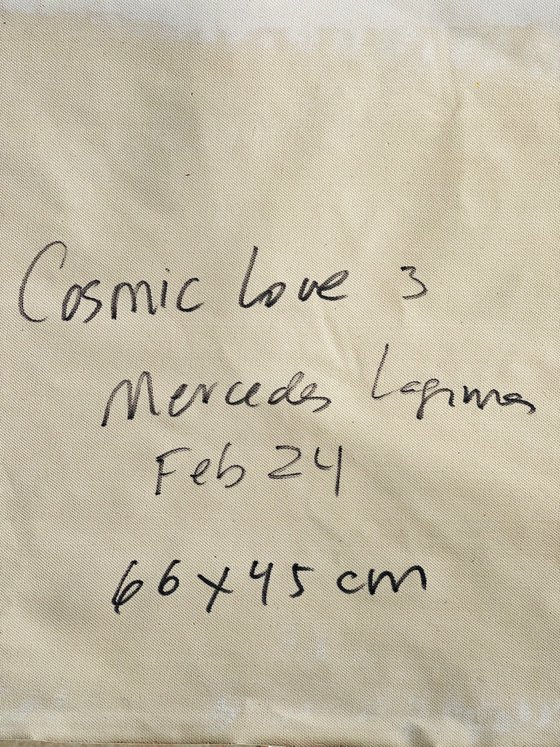 Cosmic Love 3
Mercedes Lagunas
Feb 24
66x45 cm